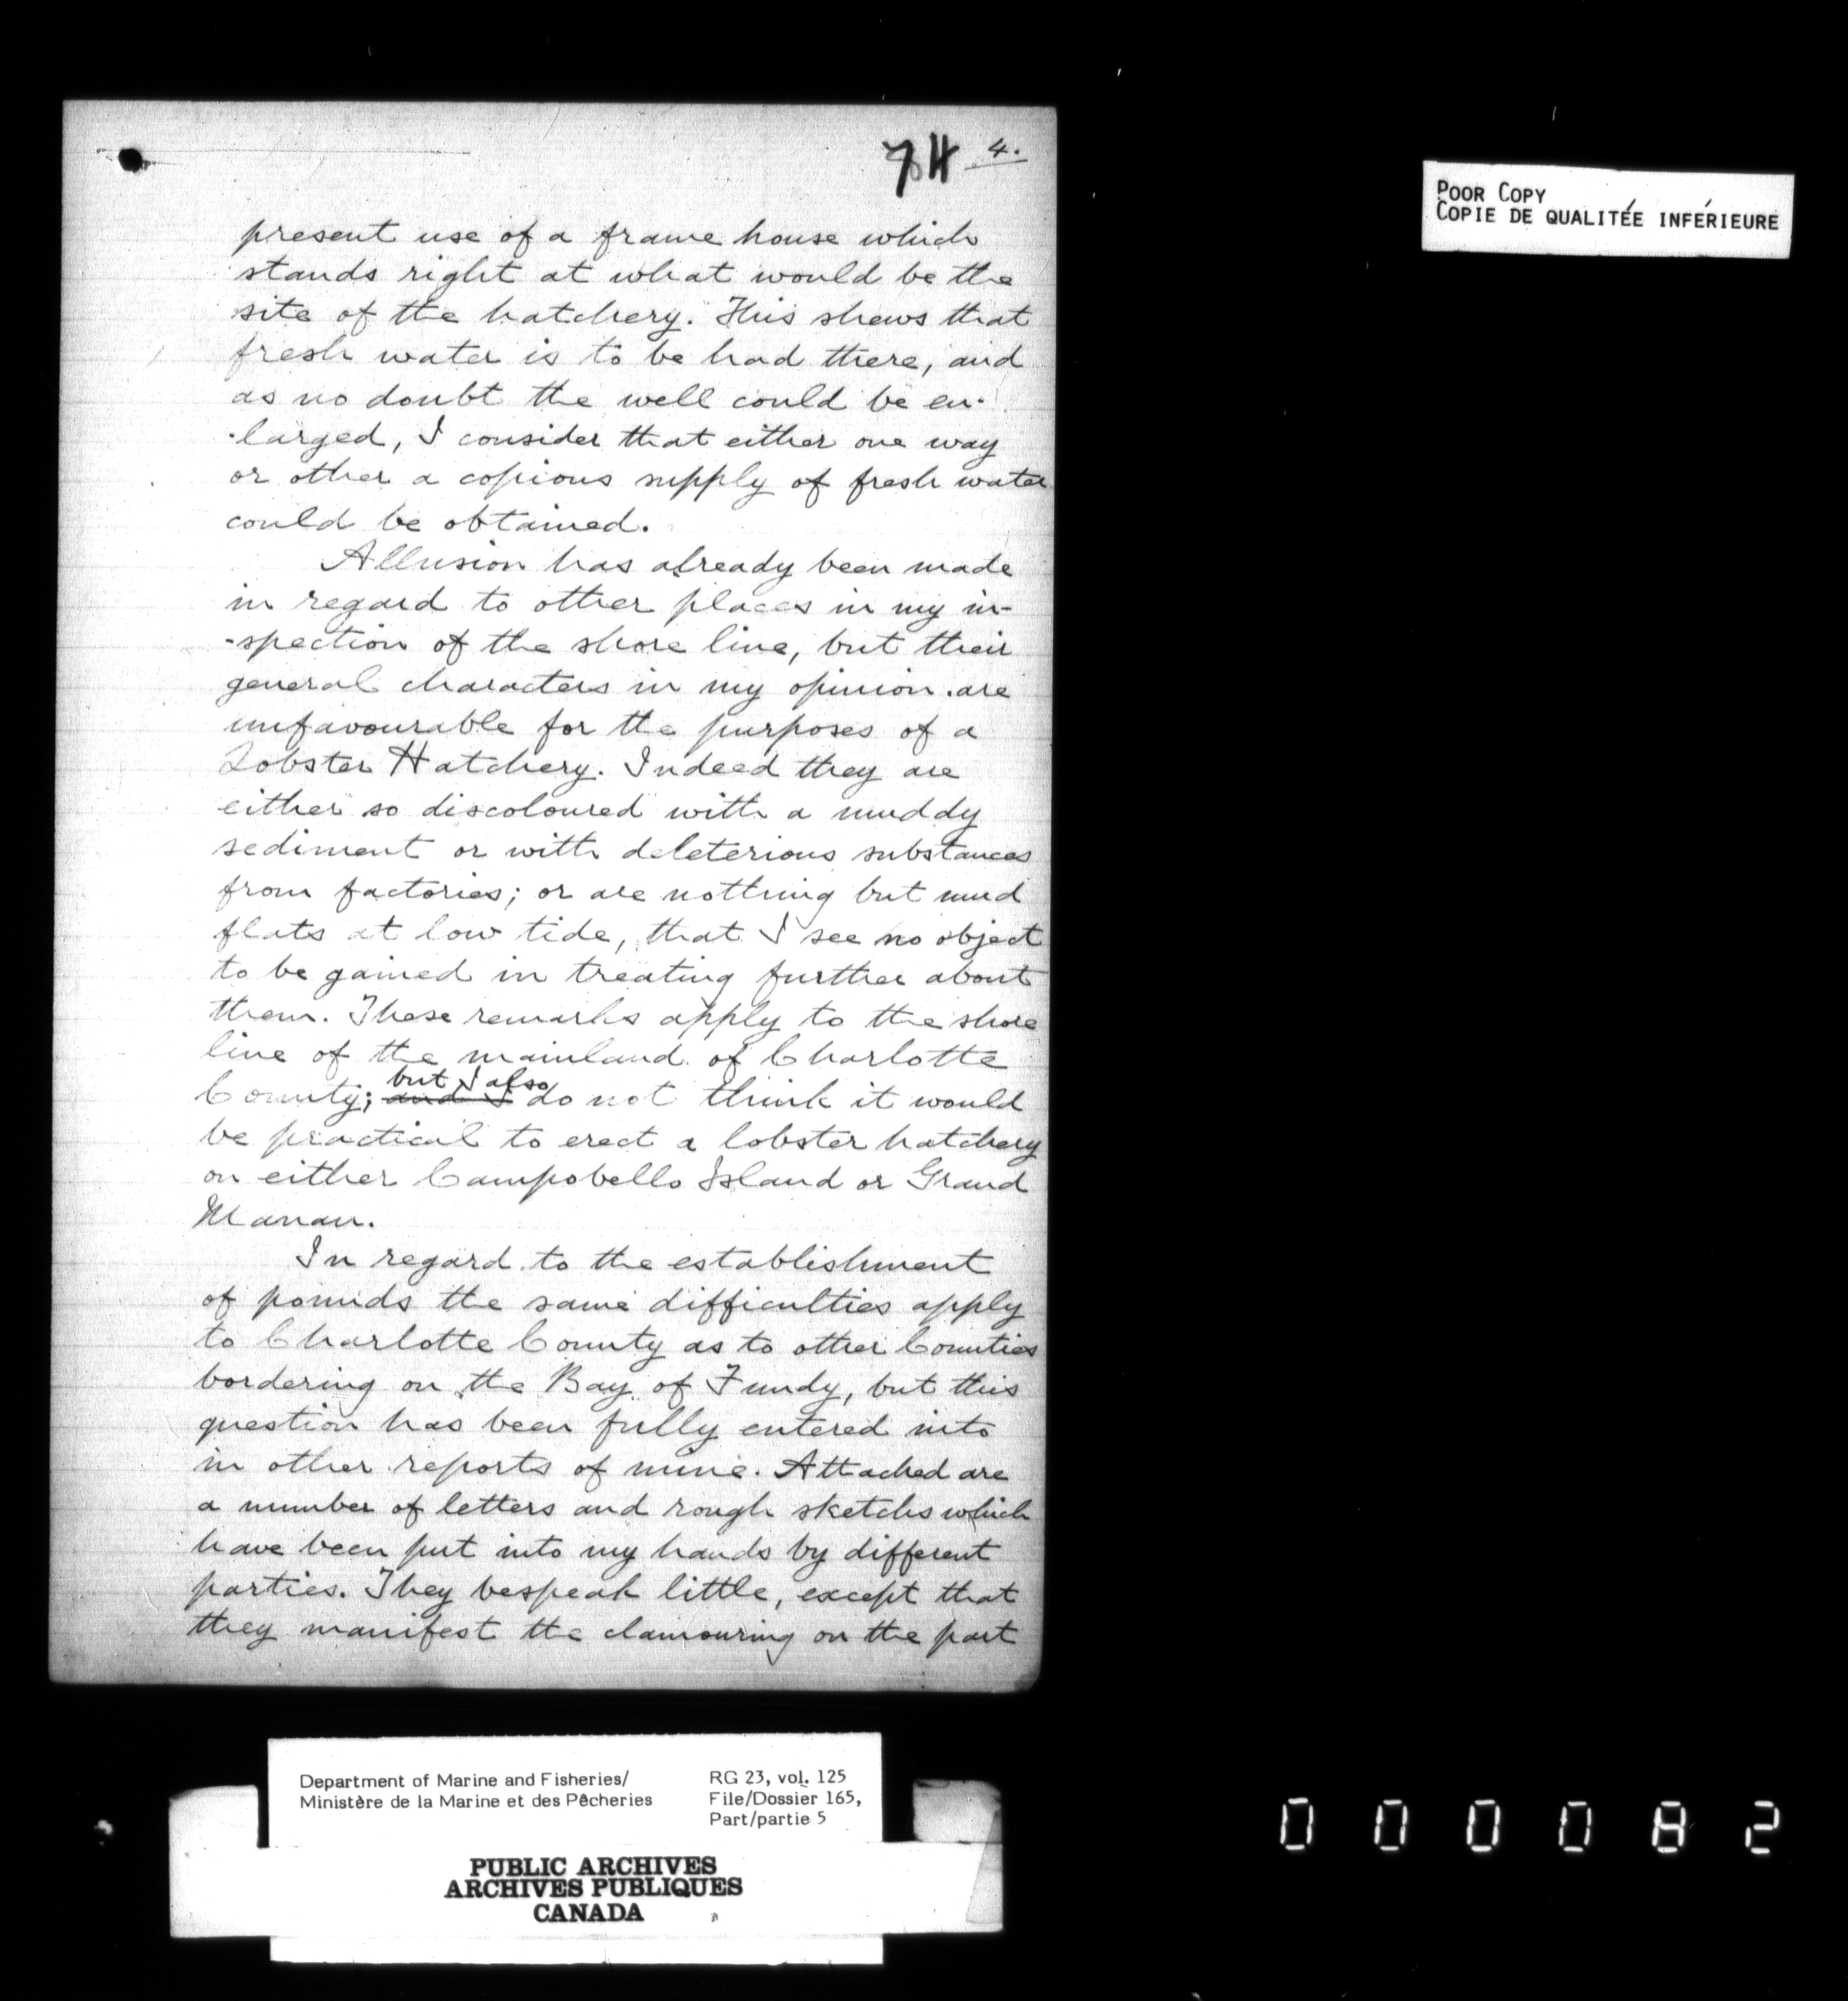 74 4.
POOR COPY
COPIE DE QUALITÉE INFÉRIEURE
present use of a frame house which
stands right at what would be the
site of the hatchery. This shews that
fresh water is to be had there, and
as no doubt the well could be en-
-larged, I consider that either one way
or other a copious supply of fresh water
could be obtained.
Allusion has already been made
in regard to other places in my in-
-spection of the shore line, but their
general characters in my opinion are
unfavourable for the purposes of a
Lobster Hatchery. Indeed they are
either so discoloured with a muddy
sediment or with deleterious substances
from factories; or are nothing but mud
flats at low tide, that I see no object
to be gained in treating further about
them. These remarks apply to the shore
line of the mainland of Charlotte
but I also
County; and I do not think it would
be practical to erect a lobster hatchery
on either Campobello Island or Grand
Manan.
In regard to the establishment
of pounds the same difficulties apply
to Charlotte County as to other Counties
bordering on the Bay of Fundy, but this
question has been fully entered into
in other reports of mine. Attached are
a number of letters and rough sketchs which
have been put into my hands by different
parties. They bespeak little, except that
they manifest the clamouring on the part
Department of Marine and Fisheries/
Ministère de la Marine et des Pêcheries
RG 23, vol. 125
File/Dossier 165,
Part/partie 5
PUBLIC ARCHIVES
ARCHIVES PUBLIQUES
CANADA
000082